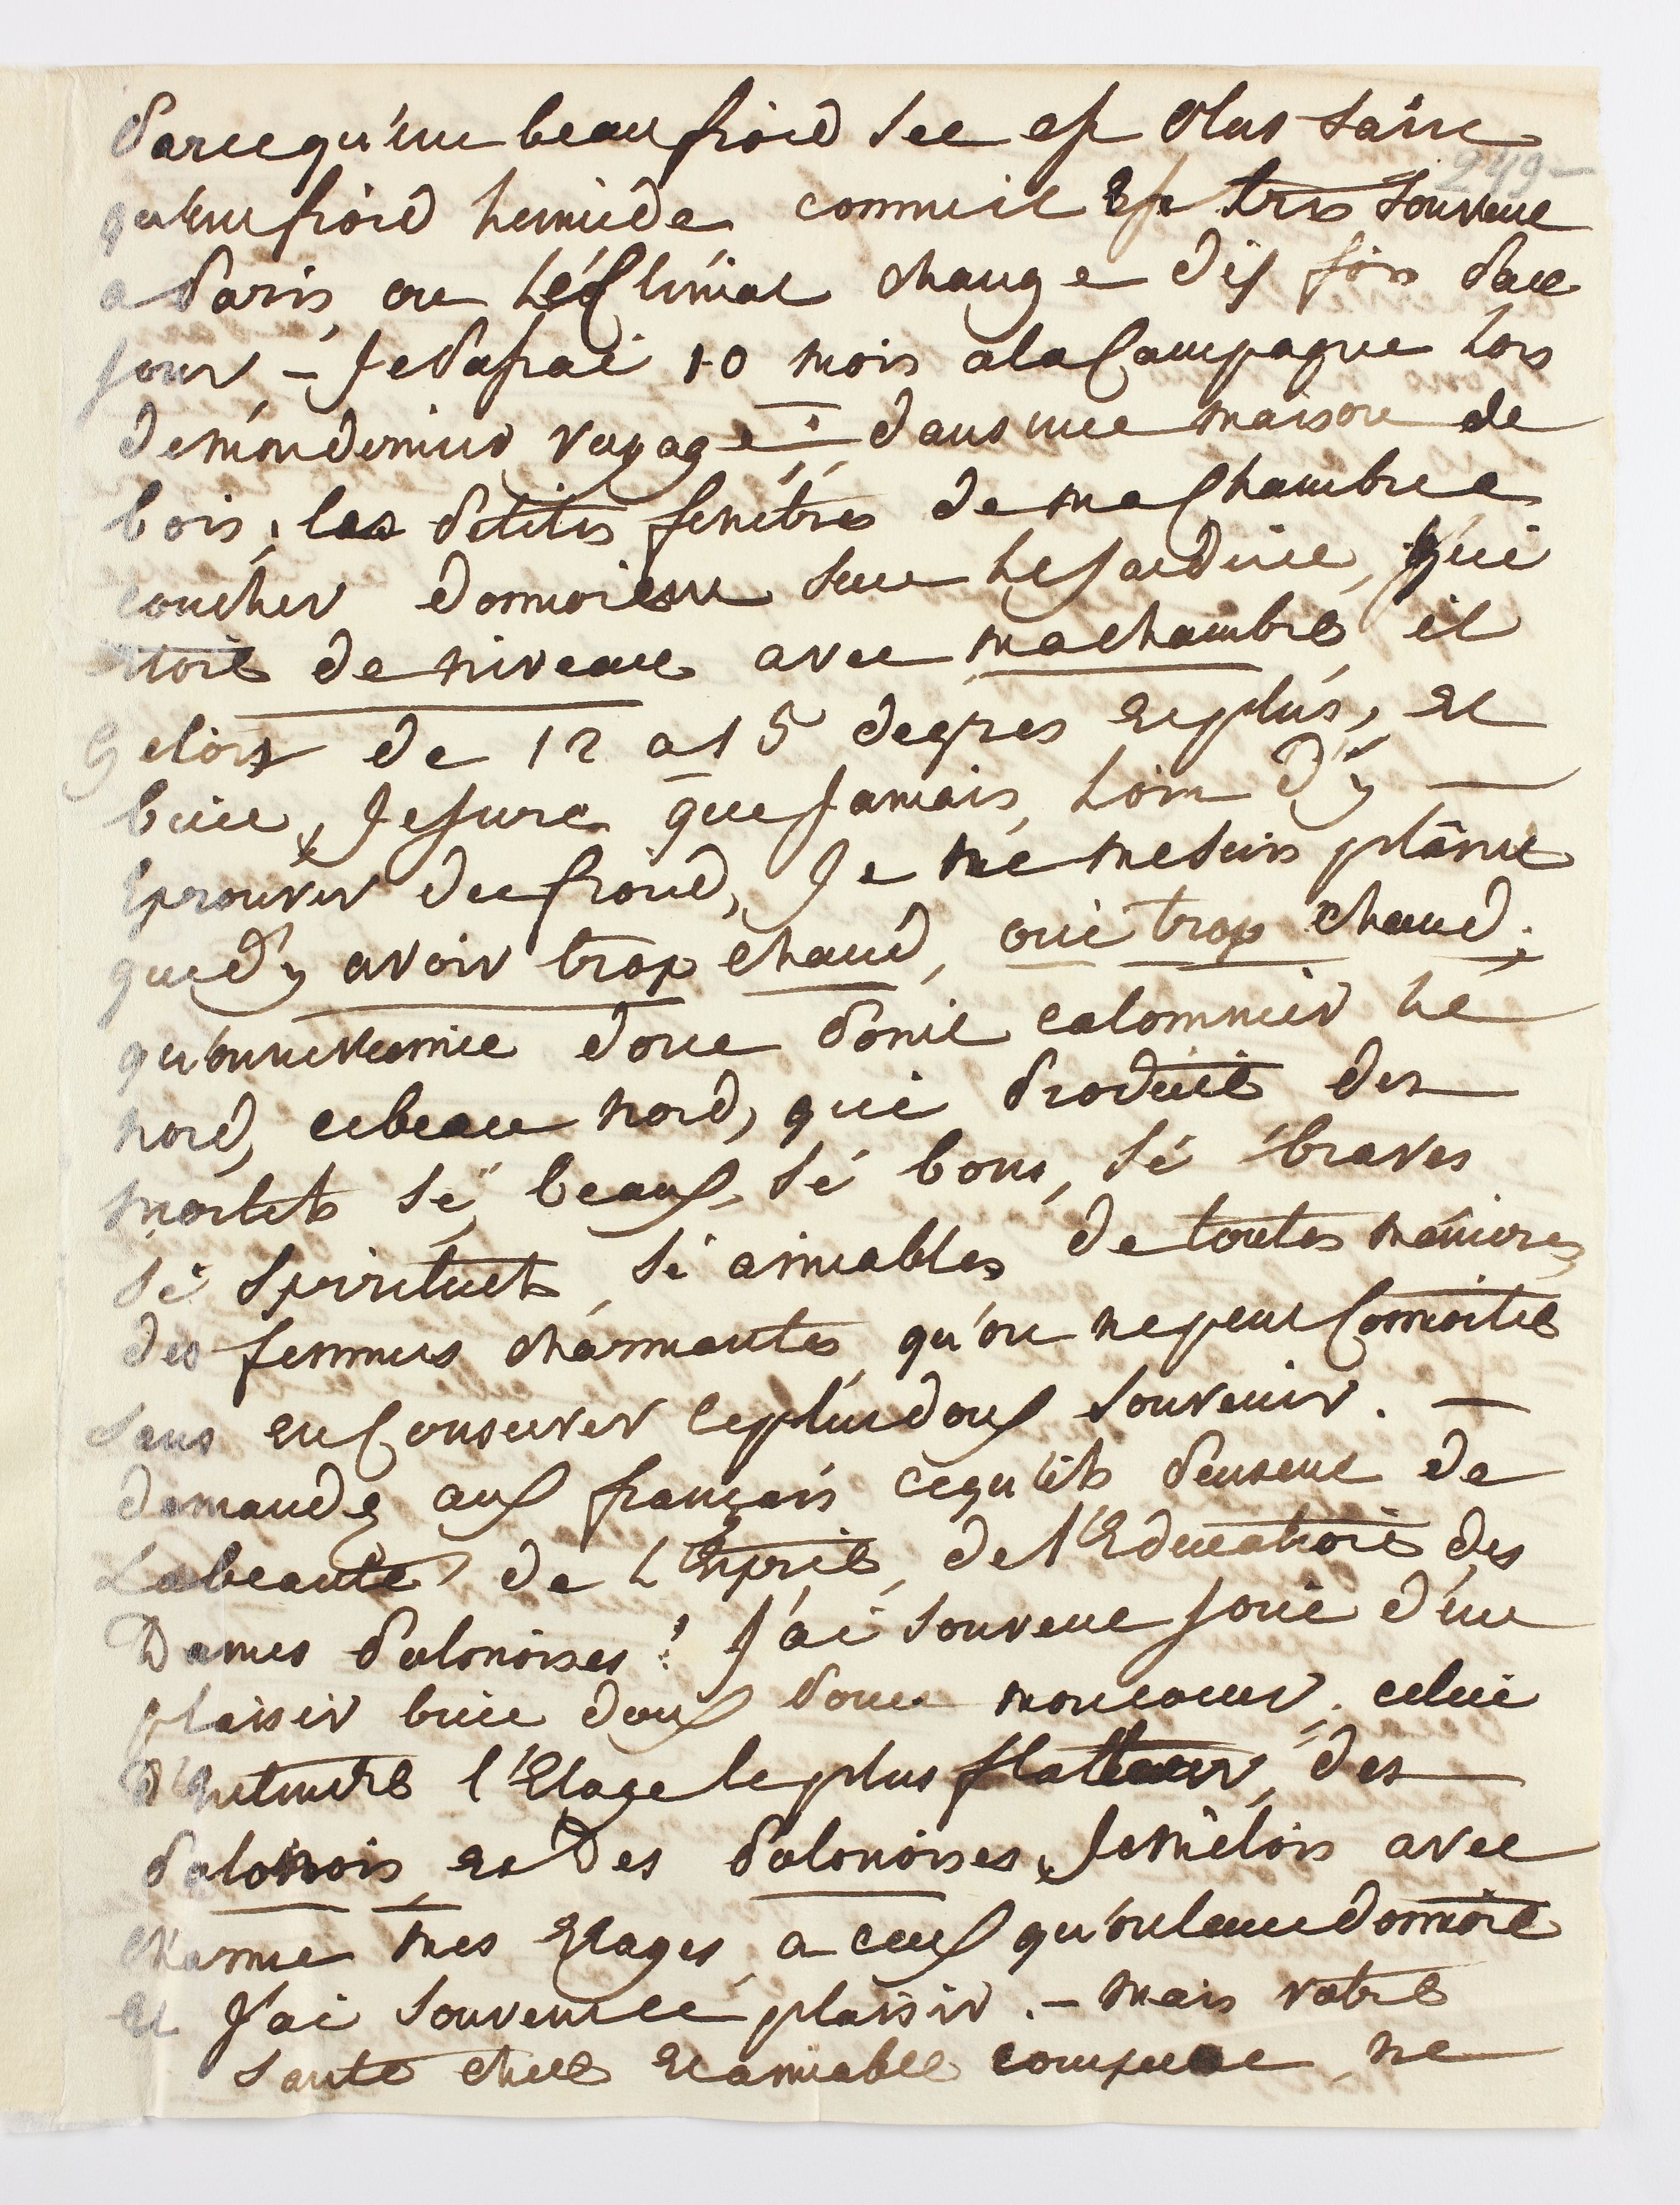 Parcequ'un beau froid sec est Plus Sain
249
qu'un froid humide comme il Est tres Souvent
a Paris, ou LéClimat change dix fois Par
jour – Je Passai 10 mois a la Campagne Lors
de mon dernier voyage : dans une maison de
bois ; les Petites fenêtres de ma Chambre a
coucher donnoient Sur Le Jardin, qui
Etoit de niveau avec ma chambre, il
Geloit de 12 a 15 degres Et plus, Et
bien, Je jure que jamais, Loin D'y –
Eprouver du froid, Je ne me Suis plaint
que D'y avoir trop chaud, oui trop chaud ;
qu'on ne vienne donc Point calomnier Le
nord, ce beau nord, qui Produit des
mortels Si beaux, Si bons, Si braves
Si Spirituels, Si aimables de toutes manieres
des femmes charmantes, qu'on ne peut Connoitre
Sans En Conserver le plus doux Souvenir. –
demandez aux français ce qu'ils Pensent de
La beauté, de L'Esprit, de l'Education des
Dames Polonoises ? J'ai Souvent joui d'un
plaisir bien doux Pour mon coeur, celui
d'Entendre l'Eloge le plus flatteur, des
Polonois Et Des Polonoises, Je mêlois avec
charme mes Eloges, a ceux qu'on leur donnoit
Et J'ai Souvent ce plaisir. – mais votre
Santé chere Et aimable comtesse, ne